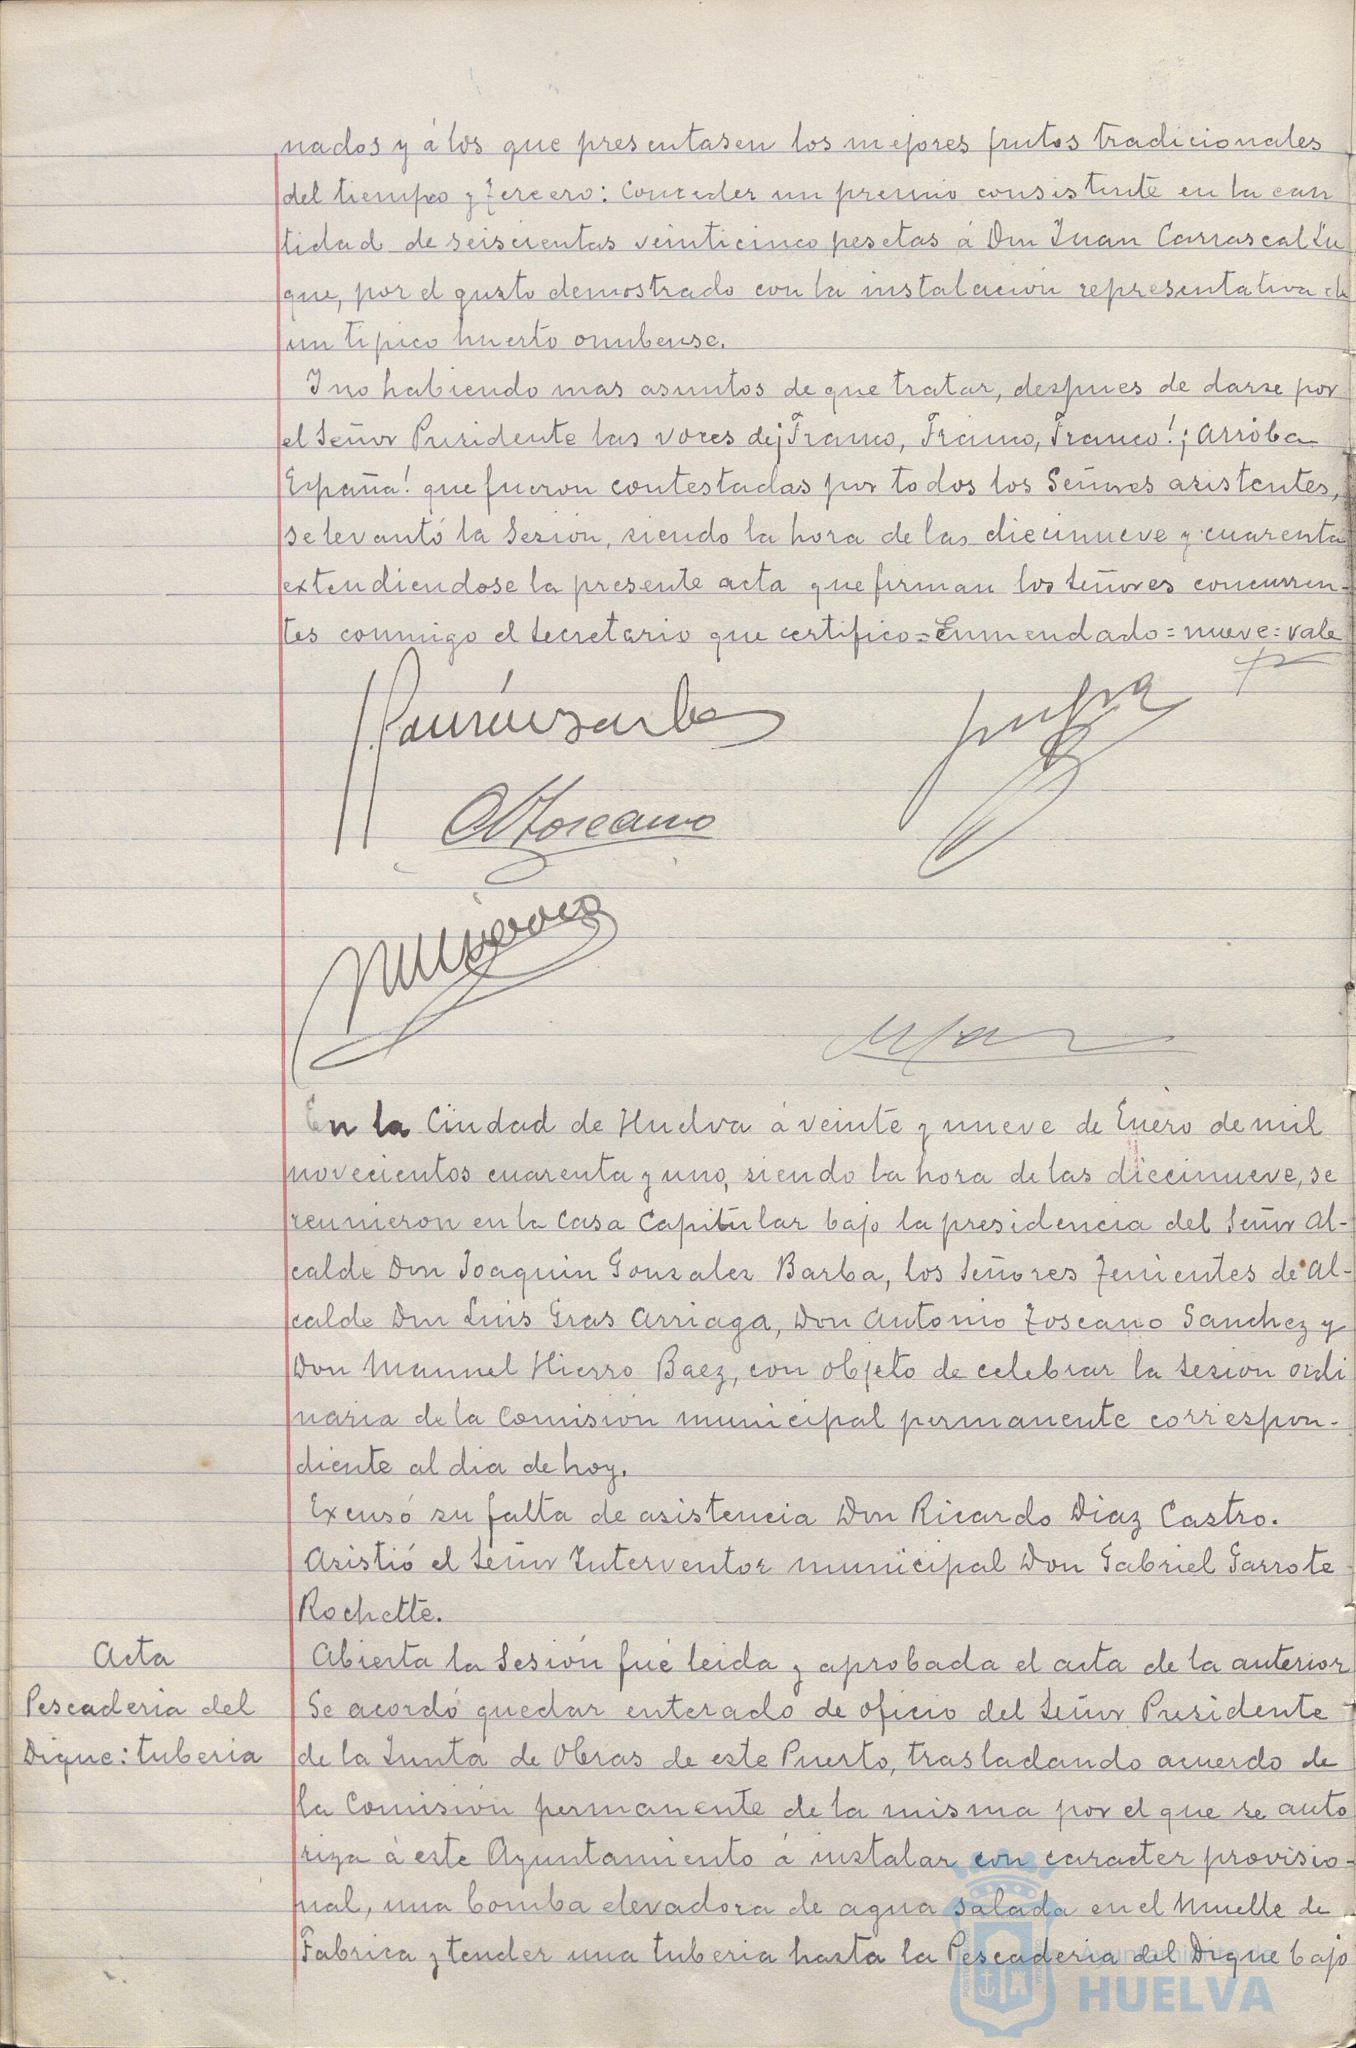 nados y á los que presentasen los mejores frutos tradicionales
del tiempo y Tercero: Conceder un premio consistente en la can
tidad de seiscientas veinticinco pesetas á Don Juan Carrascal Lu
que, por el gusto demostrado con la instalación representativa de
un tipico huerto onubense.
Y no habiendo mas asuntos de que tratar, despues de darse por
el Señor Presidente las voces de ¡Franco, Franco, Franco! ¡Arriba
España! que fueron contestadas por todos los Señores asistentes,
se levantó la Sesión, siendo la hora de las diecinueve y cuarenta
extendiendose la presente acta que firman los Señores concurren-
tes conmigo el Secretario que certifico = Enmendado = nueve = vale
A Toscano
En la Ciudad de Huelva á veinte y nueve de Enero de mil
novecientos cuarenta y uno, siendo la hora de las diecinueve, se
reunieron en la Casa Capitular bajo la presidencia del Señor Al-
calde Don Joaquin Gonzalez Barba, los Señores Tenientes de Al-
calde Don Luis Gras Arriaga, Don Antonio Toscano Sanchez y
Don Manuel Hierro Baez, con objeto de celebrar la sesion ordi
naria de la Comisión municipal permanente correspon-
diente al dia de hoy.
Excusó su falta de asistencia Don Ricardo Diaz Castro.
Asistió el Señor Interventor municipal Don Gabriel Garrote
Rochette.
Acta
Abierta la Sesión fué leida y aprobada el acta de la anterior
Pescaderia del
Dique: tuberia
Se acordó quedar enterado de oficio del Señor Presidente
de la Junta de Obras de este Puerto, trasladando acuerdo de
la Comisión permanente de la misma por el que se auto
riza á este Ayuntamiento á instalar con caracter provisio-
nal, una bomba elevadora de agua salada en el Muelle de
Fabrica y tender una tuberia hasta la Pescaderia del Dique bajo
Ayuntamiento de
HUELVA